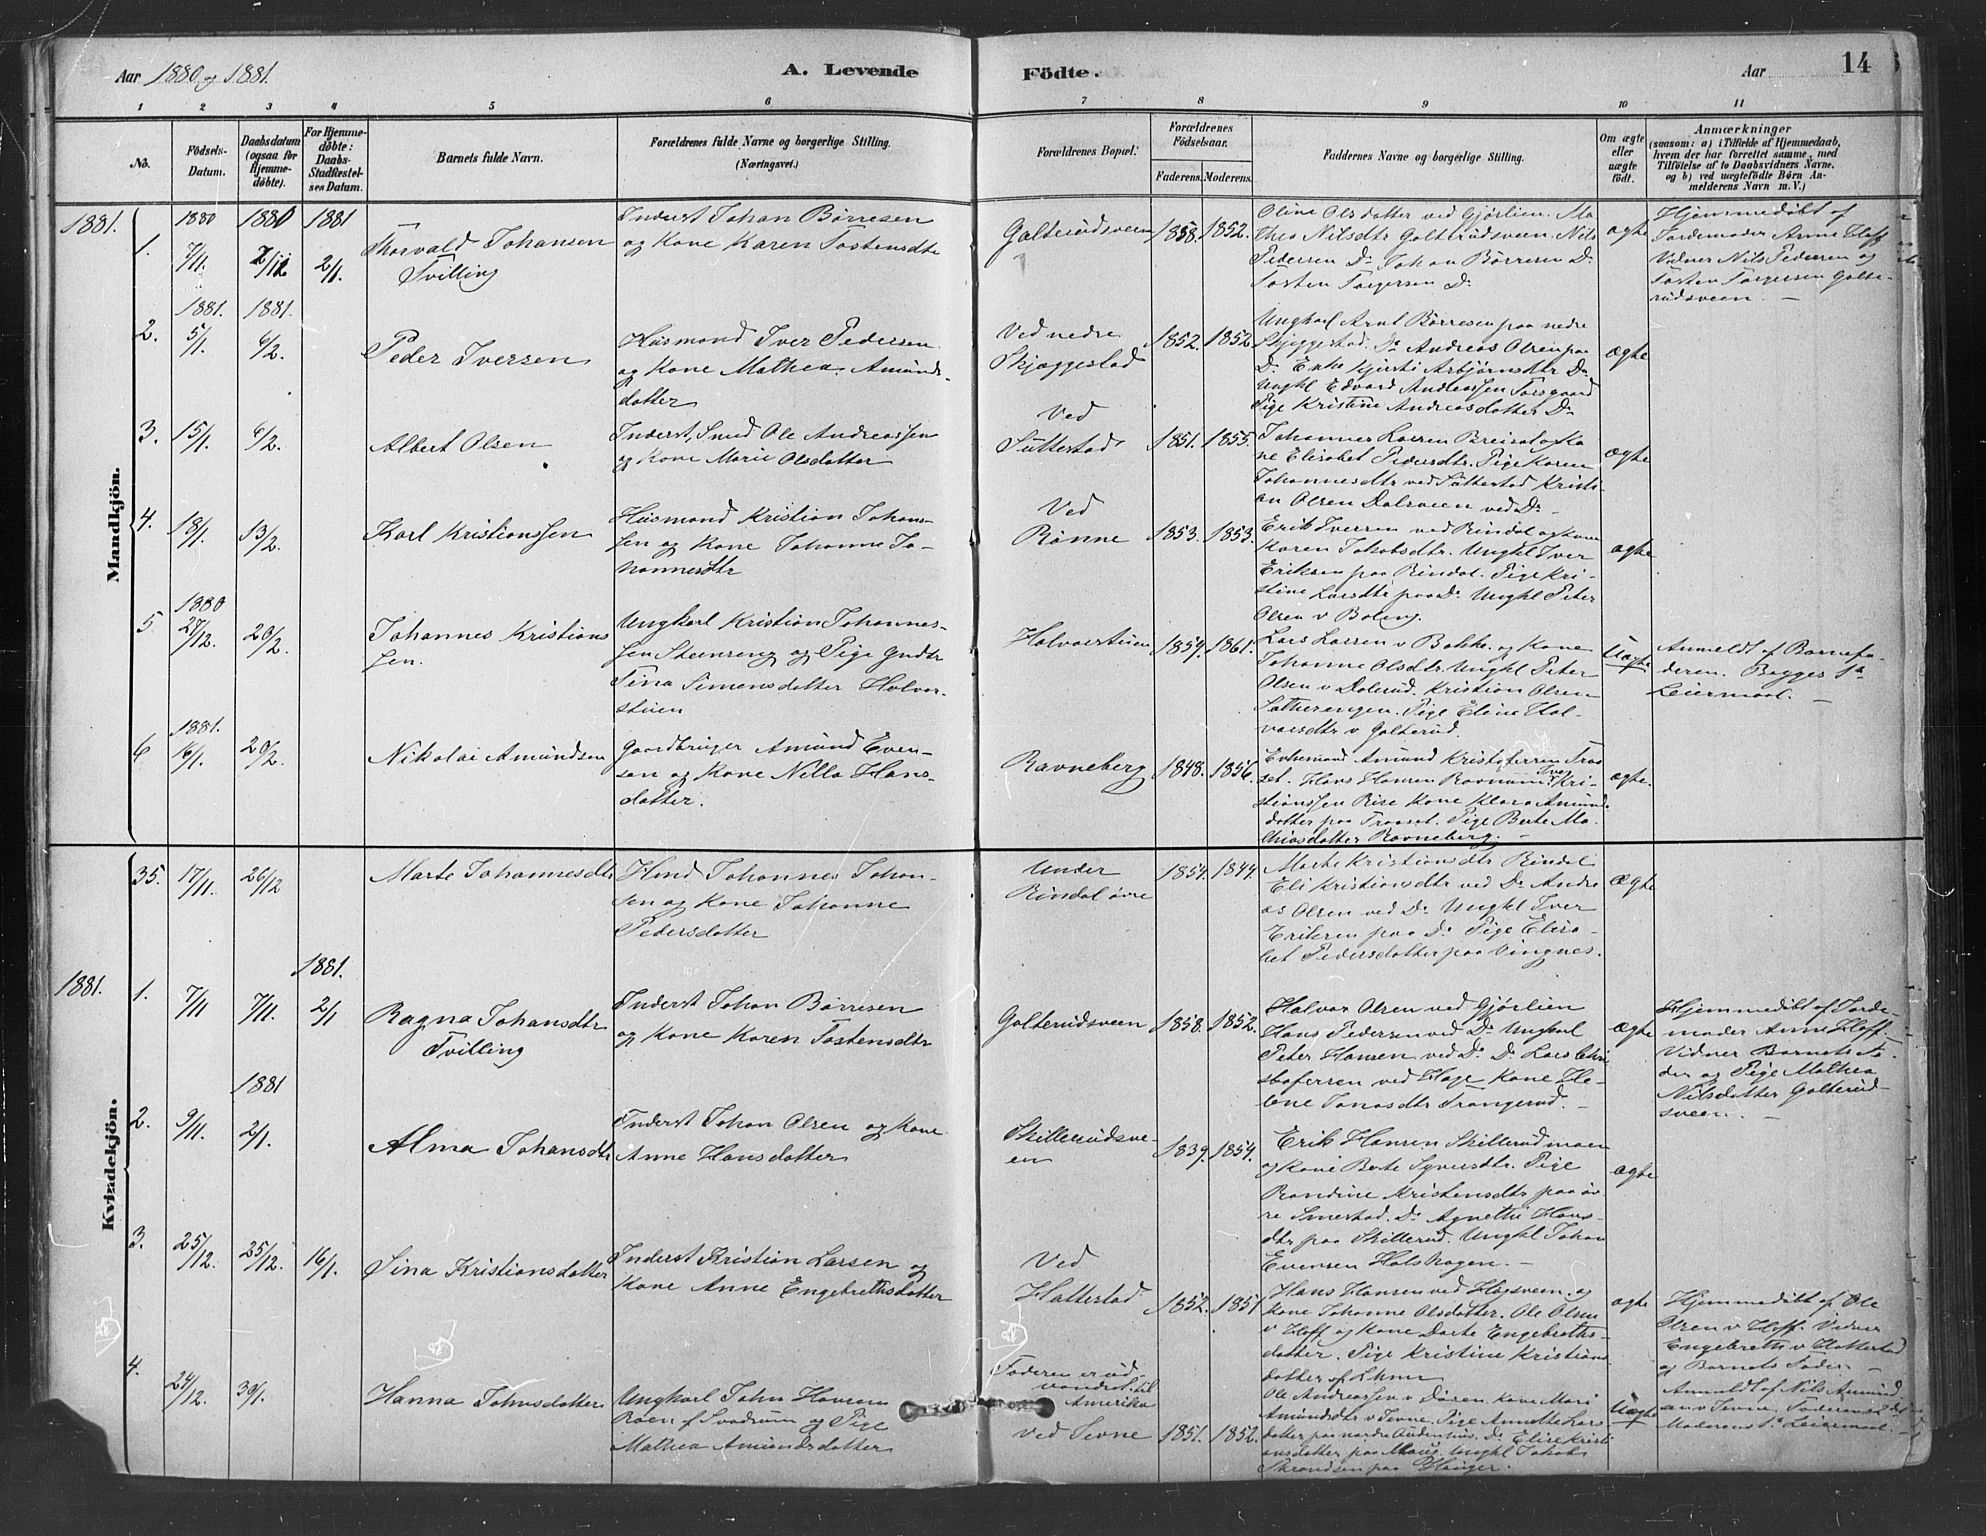 Aar 1880 og 1881.
A. Levende
Födte.
Aar
14
1 2 3 4 5 6 7 8 9 10 11
No.
Födsels-
Datum.
Daabsdatum
(ogsaa for
Hjemme-
döbte).
For Hjemme-
döbte:
Daabs-
Stadfæstel-
ses Datum.
Barnets fulde Navn.
Forældrenes fulde Navne og borgerlige Stilling.
(Næringsvei.)
Forældrenes Bopæl.
Forældrenes
Födselsaar.
Faderens. Moderens.
Faddernes Navne og borgerlige Stilling.
Om ægte
eller
uægte
födt.
Anmærkninger
(saasom: a) i Tilfælde af Hjemmedaab,
hvem der har forrettet samme, med
Tilföielse af to Daabsvidners Navne.
og b) ved uægtefödte Börn An-
melderens Navn m. V.)
Mandkjön.
1881.
1.
1880
7/11
1880
1881
2/1.
Thorvald Johansen
Tvilling
Inderst Johan Børresen
og Kone Karen Tostensdtr
Golterudsveen
1858. 1852.
Oline Olsdatter ved Gjørlien. Ma
thea Nilsdtr Golterudsveen. Nils
Pedersen Do Johan Børresen Do
Tosten Torgersen Do
ægte
Hjemmedøbt af
Jordemoder Anne Hoff
Vidner Nils Pedersen og
Tosten Torgersen Golte-
rudsveen. —
2.
1881.
5/1.
1881.
6/2.
Peder Iversen
Husmand Iver Pedersen
og Kone Mathea Amunds-
datter
Ved nedre
Skjæggestad
1852. 1852
Ungkarl Arnt Børresen paa nedre
Skjeggestad. Do Andreas Olsen paa
Do. Enke Kjersti Asbjørnsdtr Do
Ungkl Edvard Andreassen Torsgaard
Pige Kristine Andreasdatter Do
ægte
3.
15/1.
6/2.
Albert Olsen
Inderst, Smed Ole Andreassen
og Kone Marie Olsdatter
Ved
Suttestad
1851. 1855.
Johannes Larsen Breisol og Ko
ne Elisabet Pedersdtr. Pige Karen
Johannesdtr ved Suttestad Kristi-
an Olsen Dalsveen ved Do —
ægte
4.
18/1.
13/2.
Karl Kristianssen
Husmand Kristian Johans-
sen og Kone Johanne Jo-
hannesdtr
Ved
Rønne
1853. 1853.
Erik Iversen ved Rindal og Kone
Karen Jakobsdtr. Ungkl Iver
Eriksen paa Rindal. Pige Kri-
stine Larsdtr paa Do. Ungkl Peter
Olsen v Boleng.
ægte
5.
1880
27/12.
20/2.
Johannes Kristians
sen.
Ungkarl Kristian Johannes-
sen Steinseng og Pige Gndtr
Tina Simensdatter Holvor-
stuen
Holvorstuen
1859. 1861.
Lars Larsen v Bakke. og Kone
Johanne Olsdtr. Ungkl Peter
Olsen v Dolerud. Kristian Olsen
Sætherengen. Pige Eline Hal-
vorsdtr v Golterud.
Uægte
Anmeldt af Barnefa-
deren. Begges 1ste
Leiermaal. —
6
1881.
16/1.
20/2.
Nikolai Amundsen
Gaardbruger Amund Even-
sen og Kone Nilla Hans-
datter.
Ravneberg
1848. 1856.
Enkemand Amund Kristofersen Traa
set. Hans Hansen Ravnum Iver Kri-
stianssen Rise Kone Klara Amunds
datter paa Traaset. Pige Berte Ma-
thiasdatter Ravneberg. —
ægte.
Kvindekjön.
35.
17/11.
26/12
Marte Johannesdtr
Hmd Johannes Johan-
sen og Kone Johanne
Pedersdatter
Under
Rindal øvre
1854. 1844.
Marte Kristiansdtr Rindal
Eli Kristiansdtr ved Do. Andre
as Olsen ved Do. Ungkl Iver
Eriksen paa Do Pige Elisa-
bet Pedersdatter paa Vingnes.
Ægte
1881.
1.
7/11
7/11.
1881.
2/1
Ragna Johansdtr
Tvilling
Inderst Johan Børresen
og Kone Karen Tostensdtr
Golterudsveen
1858. 1852.
Halvor Olsen ved Gjørlien
Hans Pedersen ved Do Ungkarl
Peter Hansen ved Do. Do Lars Chri
stofersen ved Hage Kone He-
lene Jonasdtr Trangerud. —
ægte
Hjemmedøbt af Jorde-
moder Anne Hoff.
Vidner Barnets Fa-
der og Pige Mathea
Nilsdatter Golterud-
sveen. —
2.
9/11.
1881
2/1.
Alma Johansdtr
Inderst Johan Olsen og Kone
Anne Hansdatter
Skillerudsve-
en
1839. 1854.
Erik Hansen Skillerudmoen
og Kone Berte Syversdtr. Pige
Randine Kristensdtr paa øv
re Smestad. Do Agnethe Hans-
dtr paa Skillerud. Ungkl Johan
Evensen Holshagen. —
ægte
3.
25/12.
25/12.
16/1.
Sina Kristiansdatter
Inderst Kristian Larsen og
Kone Anne Engebrethsdatter
Ved
Hattestad
1852. 1851
Hans Hansen ved Hagsveen. og
Kone Johanne Olsdatter. Ole Olsen
v Hoff og Kone Dorte Engebreths-
datter. Pige Kristine Kristians-
datter
ægte
Hjemmedøbt af Ole
Olsen v Hoff. Vidner
Engebreth v Hattestad
og Barnets Fader —
4.
24/12.
30/1.
Hanna Johnsdatter
Ungkarl John Hansen
Roen af Svadsum og Pige
Mathea Amundsdatter
Faderen er ud
vandret til
Amerika
ved Sevne
1851. 1852.
Ole Andreassen v Døsen. Kone Mari
Amundsdtr v Sevne. Pige Annette Lars
datter paa nordre Do Elise Kristi
ansdatter paa Ungkl Jakob
paa Hauger.
Uægte
Anmeldt af Nils Amund-
sen v Sevne. Faderens
Moderens 1ste Leiermaal.